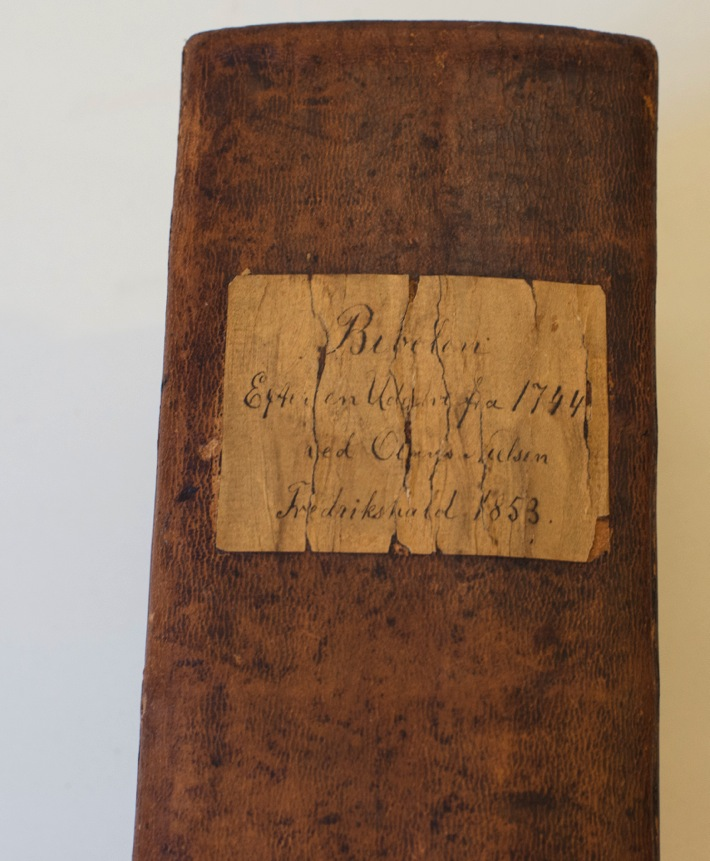 Bibelen
Efter en Udgave fra 1744
ved Nielsen
Fredrikshald 1853.